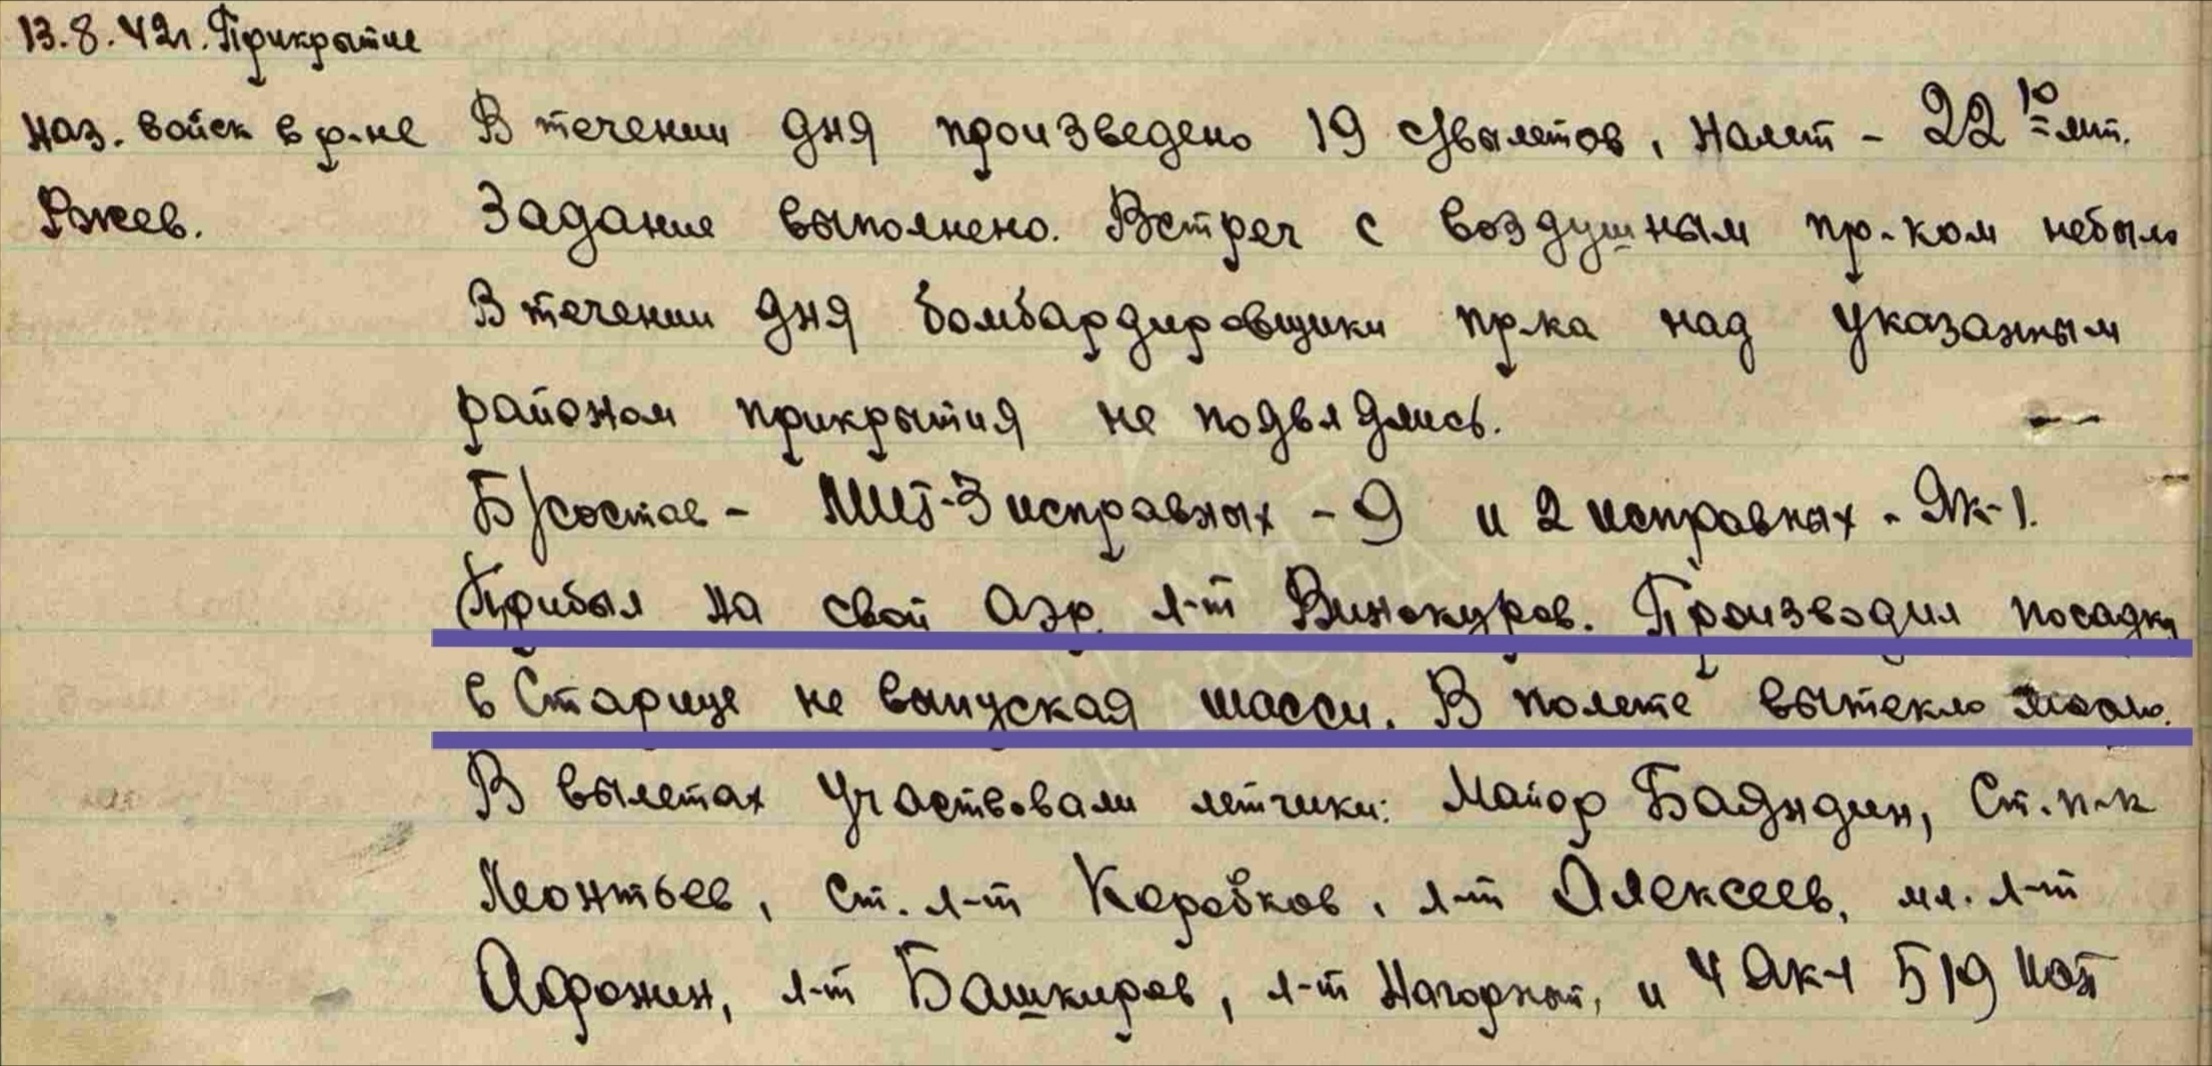 13.8.42г. Прикрытие
наз. войск в р-не В течении дня произведено 19 с/вылетов, налет - 22 10 мт.
Ржев. Задание выполнено. Встреч с воздушным пр-ком небыло
В течении дня бомбардировщики пр-ка над указанным
районом прикрытия не подвлялись.
Б/состав - МИГ-3 исправных - 9 и 2 исправных - Як-1.
Прибыл на свой аэр. л-т Винокуров. Производил посадку
в Старице не выпуская шасси. В полете вытекло масло.
В вылетах участвовали летчики: Майор Бадндин, Ст. п-к
Леонтьев, ст. л-т Коробков, л-т Алексеев, мл. л-т
Афонин, л-т Башкиров, л-т Нагорный, и 4 Як-1 519 иап